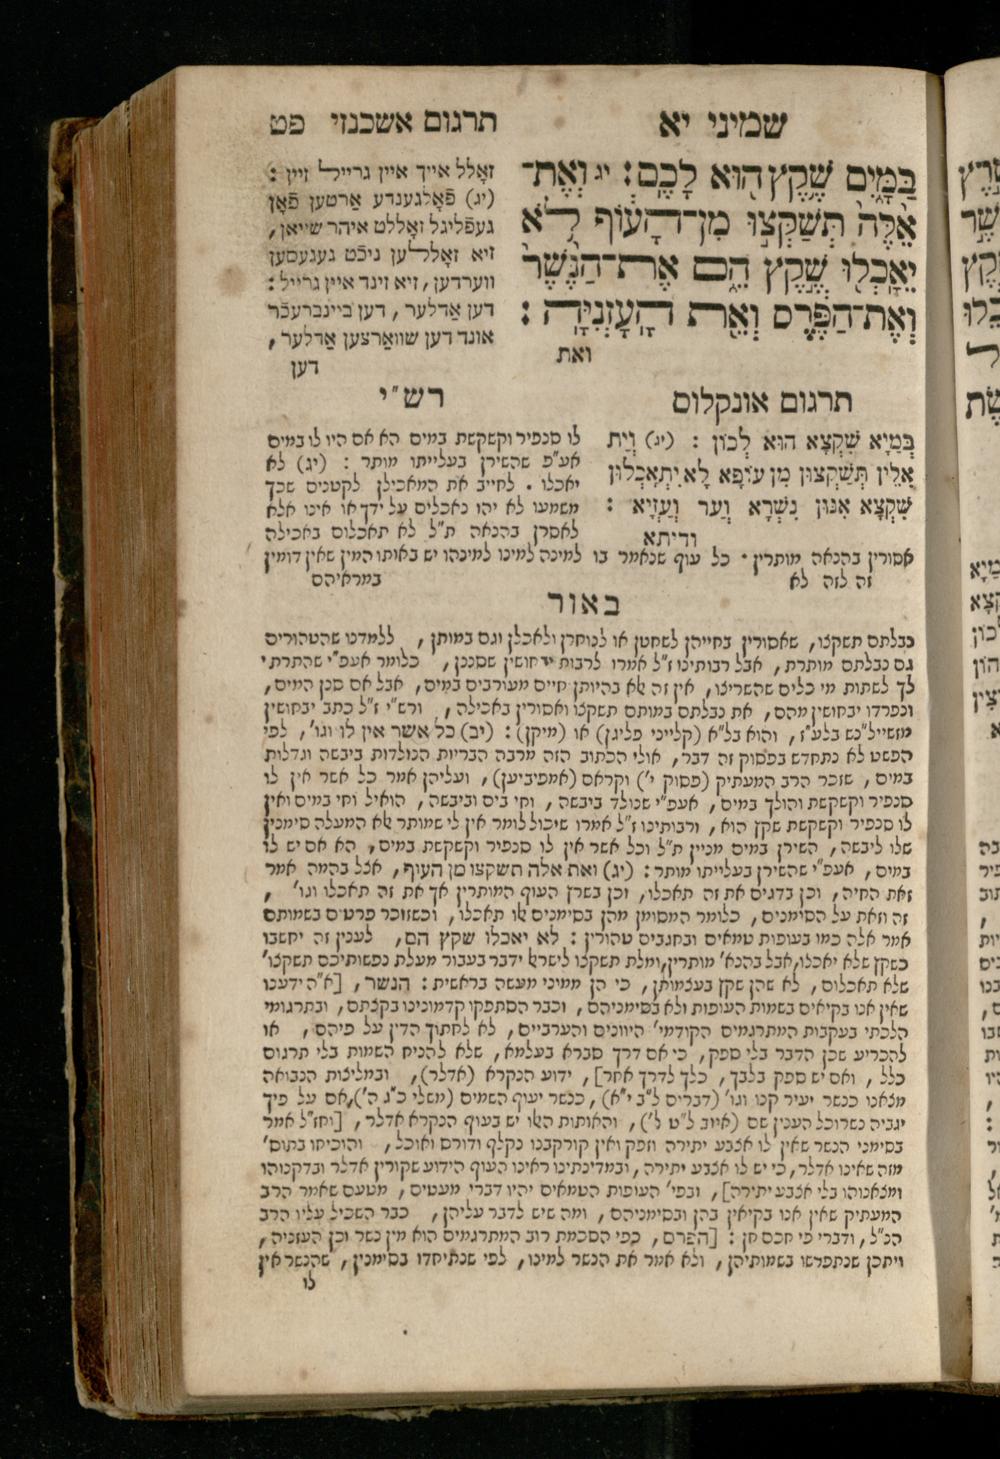 שמיני יא
תרגום אשכנזי פט
בַּמָּיִם שֶׁקֶץ הוּא לָכֶם׃ יג וְאֶת־
אֵלֶּה תְּשַׁקְּצוּ מִן־הָעוֹף לֹא
יֵאָכְלוּ שֶׁקֶץ הֵם אֶת־הַנֶּשֶׁר
וְאֶת־הַפֶּרֶס וְאֵת הָעָזְנִיָּה׃
ואת
זאָלל אייך איין גרייל זיין :
(יג) פֿאָלגענדע אַרטען פֿאָן
געפֿליגל זאָללט איהר שייאן,
זיא זאָללען ניכֿט געגעסען
ווערדען, זיא זינד איין גרייל :
דען אַדלער, דען ביינברעכֿר
אונד דען שוואַרצען אַדלער,
דען
תרגום אונקלוס
בְּמַיָא שִׁקְצָא הוּא לְכוֹן : (יג) וְיַת
אִלֵּין תְּשַׁקְּצוּן מִן עוֹפָא לָא יִתְאַכְלוּן
שִׁקְצָא אִנּוּן נִשְׁרָא וְעַר וְעַזְיָא :
ודיתא
רש״י
לו סנפיר וקשקשת במים הא אם היו לו במים
אע״פ שהשירן בעלייתו מותר : (יג) לא
יאכלו . לחייב את המאכילן לקטנים שכך
משמעו לא יהו נאכלים על ידך או אינו אלא
לאסרן בהנאה ת״ל לא תאכלום באכילה
אסורין בהנאה מותרין. כל עוף שנאמר בו למינה למינו למינהו יש באותו המין שאין דומין
זה לזה לא במראיהם
באור
נבלתם תשקצו, שאסורין בחייהן לשחטן או לנוחרן ולאכלן וגם במותן, ללמדנו שהטהורים
גם נבלתם מותרת, אבל רבותינו ז״ל אמרו לרבות יבחושין שסננן, כלומר אעפ״י שהתרתי
לך לשתות מי כלים שהשריצו, אין זה אלא בהיותן חיים מעורבים במים, אבל אם סנן המים,
ונפרדו יבחושין מהם, את נבלתם במותם תשקצו ואסורין באכילה, ורש״י ז״ל כתב יבחושין
מושיל״נש בלע״ז, והוא בל״א (קלייני פליגן) או (מיקן) : (יב) כל אשר אין לו וגו', לפי
הפשט לא נתחדש בפסוק זה דבר, אולי הכתוב הזה מרבה הבריות הנולדות ביבשה וגדלות
במים, שזכר הרב המעתיק (פסוק י') וקראם (אמפיביען), ועליהן אמר כל אשר אין לו
סנפיר וקשקשת והולך במים, אעפ״י שנולד ביבשה, וחי בים וביבשה, הואיל וחי במים ואין
לו סנפיר וקשקשת שקץ הוא, ורבותינו ז״ל אמרו שיכול לומר אין לי שמותר אלא המעלה סימנין
שלו ליבשה, השירן במים מניין ת״ל וכל אשר אין לו סנפיר וקשקשת במים, הא אם יש לו
במים, אעפ״י שהשירן בעלייתו מותר : (יג) ואת אלה תשקצו מן העוף, אצל בהמה אמר
זאת החיה, וכן בדגים את זה תאכלו, וכן בשרץ העוף המותרין אך את זה תאכלו וגו',
זה וזאת על הסימנים, כלומר המסומן מהן בסימנים אלו תאכלו, וכשזוכר פרטים בשמותם
אמר אלה כמו בעופות טמאים ובחגבים טהורין : לא יאכלו שקץ הם, לענין זה יחשבו
כשקץ שלא יאכלו, אבל בהנא' מותרין, ומלת תשקצו לישראל ידבר בעבור מעלת נפשותיכם תשקצו'
שלא תאכלום, לא שהן שקץ בעצמותן, כי הן ממיני מעשה בראשית : הנשר, [א״ה ידענו
שאין אנו בקיאים בשמות העופות ולא בסימניהם, וכבר הסתפקו קדמונינו בקצתם, ובתרגומי
הלכתי בעקבות המתרגמים הקודמי' היוונים והערביים, לא לחתוך הדין על פיהם, או
להכריע שכן הדבר בלי ספק, כי אם דרך סברא בעלמא, שלא להניח השמות בלי תרגום
כלל, ואם יש ספק בלבך, כלך לדרך אחר], ידוע הנקרא (אדלר), ובמליצות הנבואה
מצאנו כנשר יעיר קנו וגו' (דברים ל״ב י״א), כנשר יעוף השמים (משלי כ״ג ה'), אם על פיך
יגביה נשר וכל הענין שם (איוב ל״ט ל'), והאותות האלו יש בעוף הנקרא אדלר, [וחז״ל אמר
בסימני הנשר שאין לו אצבע יתירה וזפק ואין קורקבנו נקלף ודורס ואוכל, והוכיחו בתוס'
מזה שאינו אדלר, כי יש לו אצבע יתירה, ובמדינתינו ראינו העוף הידוע שקורין אדלר ובדקנוהו
ומצאנוהו בלי אצבע יתירה], ובפי' העופות הטמאים יהיו דברי מעטים, מטעם שאמר הרב
המעתיק שאין אנו בקיאין בהן ובסימניהם, ומה שיש לדבר עליהן, כבר השכיל עליו הרב
הנ״ל, ודברי פי חכם חן : [הפרס, כפי הסכמת רוב המתרגמים הוא מין נשר וכן העזניה,
ויתכן שנתפרשו בשמותיהן, ולא אמר את הנשר למינו, לפי שנתיחדו בסימנין, שהנשר אין
לו